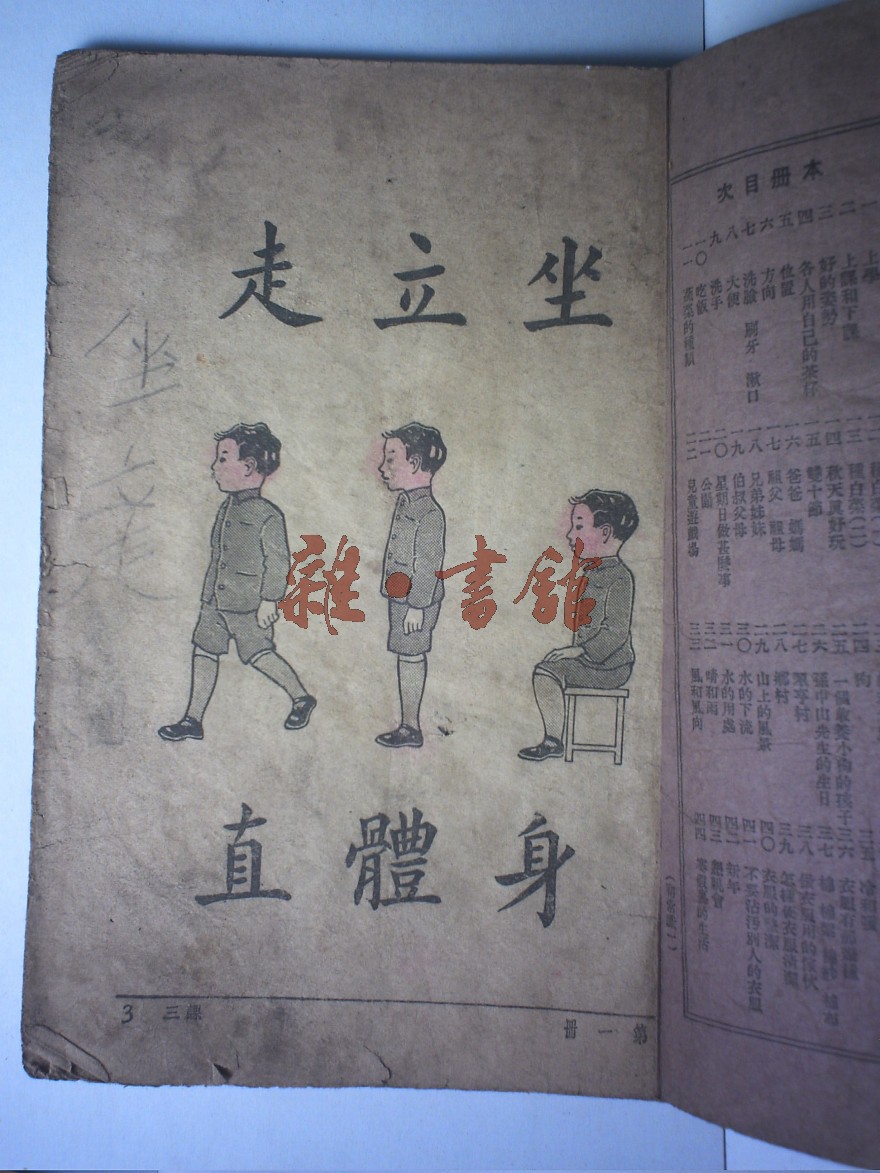 坐立走
身體直
坐立走
第一冊
課三
3
雜·書館
本冊目次
一 上學
二 上課和下課
三 好的姿勢
四 各人用自己的茶杯
五 位置
六 方向
七 洗臉 刷牙 漱口
八 大便
九 洗手
一〇 吃飯
一一 蔬菜的種類
一三 種白菜(二)
一四 秋天真好玩
一五 雙十節
一六 爸爸 媽媽
一七 祖父 祖母
一八 兄弟姊妹
一九 伯叔父母
二〇 星期日做甚麼事
二一 公園
二二 兒童遊戲場
二四 狗
二五 一個 小狗的孩子
二六 孫中山先生的生日
二七 翠亨村
二八 鄉村
二九 山上的風景
三〇 水的下流
三一 水的用處
三二 晴和雨
三三 風和風向
三五 冷和暖
三六 衣服有
三七
三八 做衣服用的
三九 怎樣使衣服清潔
四〇 衣服的整潔
四一 不要沾污別人的衣服
四二 新年
四三 懇親會
四四 寒假裏的生活